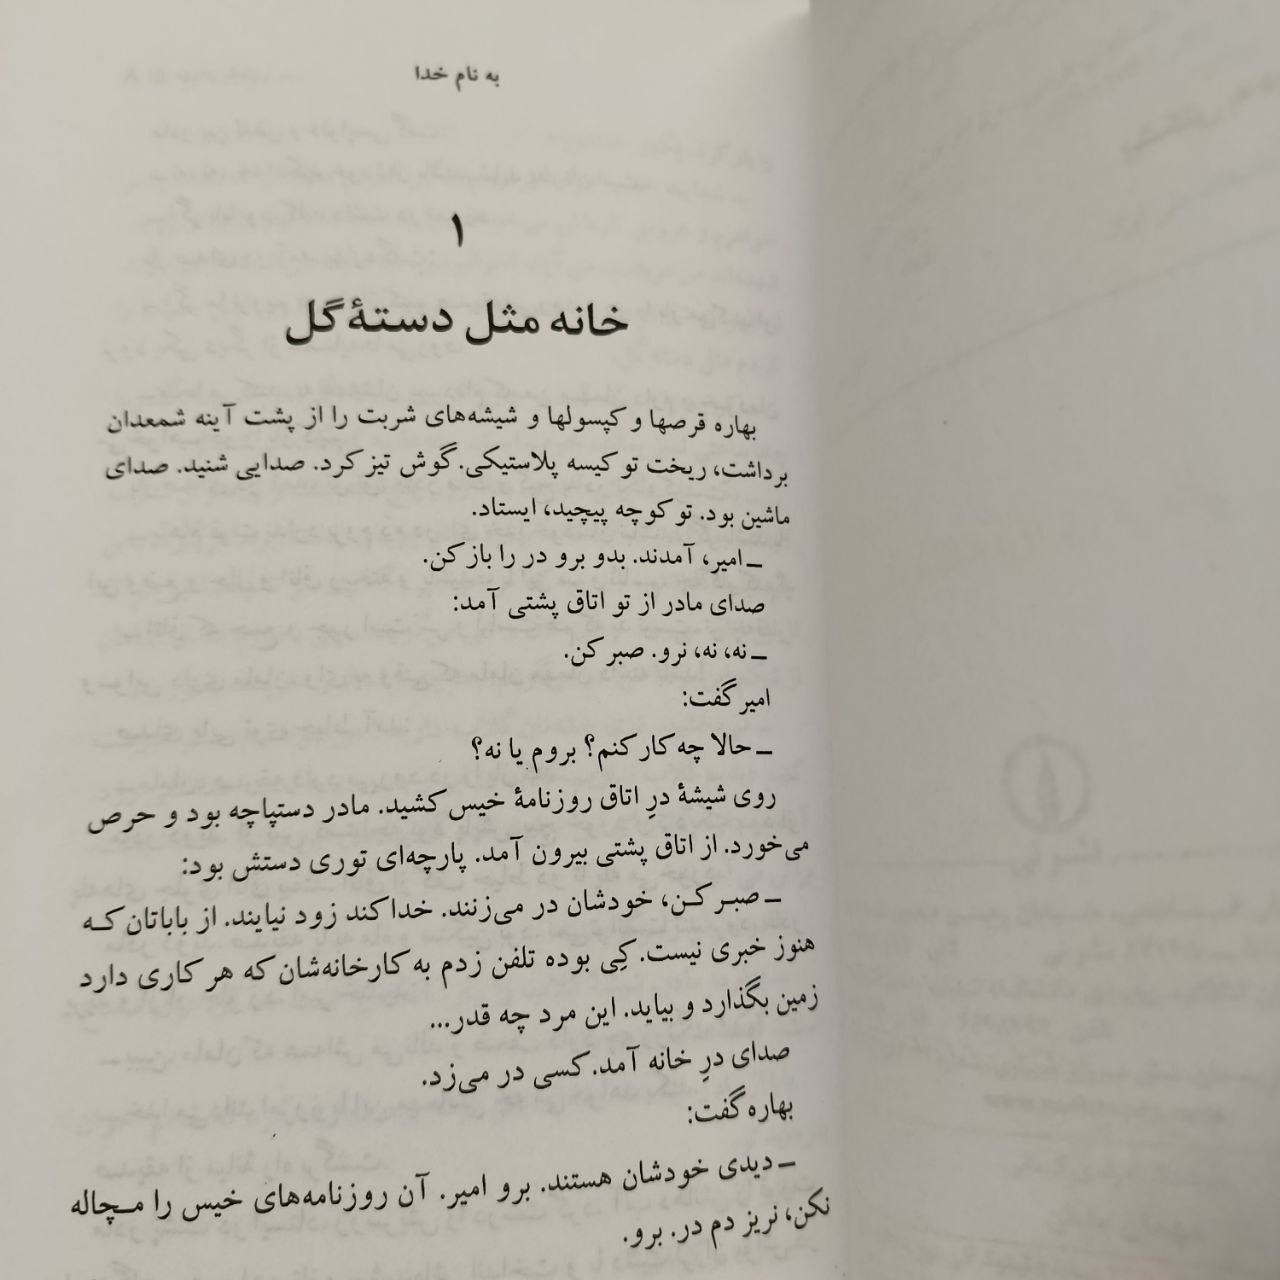 به نام خدا
۱
خانه مثل دستۀ گل
بهاره قرصها و کپسولها و شیشه‌های شربت را از پشت آینه شمعدان
برداشت، ریخت تو کیسه پلاستیکی. گوش تیز کرد. صدایی شنید. صدای
ماشین بود. تو کوچه پیچید، ایستاد.
ـ امیر، آمدند. بدو برو در را باز کن.
صدای مادر از تو اتاق پشتی آمد:
ـ نه، نه، نرو. صبر کن.
امیر گفت:
ـ حالا چه کار کنم؟ بروم یا نه؟
روی شیشۀ درِ اتاق روزنامۀ خیس کشید. مادر دستپاچه بود و حرص
می‌خورد. از اتاق پشتی بیرون آمد. پارچه‌ای توری دستش بود:
ـ صبر کن، خودشان در می‌زنند. خدا کند زود نیایند. از باباتان که
هنوز خبری نیست. کِی بوده تلفن زدم به کارخانه‌شان که هر کاری دارد
زمین بگذارد و بیاید. این مرد چه قدر...
صدای درِ خانه آمد. کسی در می‌زد.
بهاره گفت:
ـ دیدی خودشان هستند. برو امیر. آن روزنامه‌های خیس را مچاله
نکن، نریز دم در. برو.